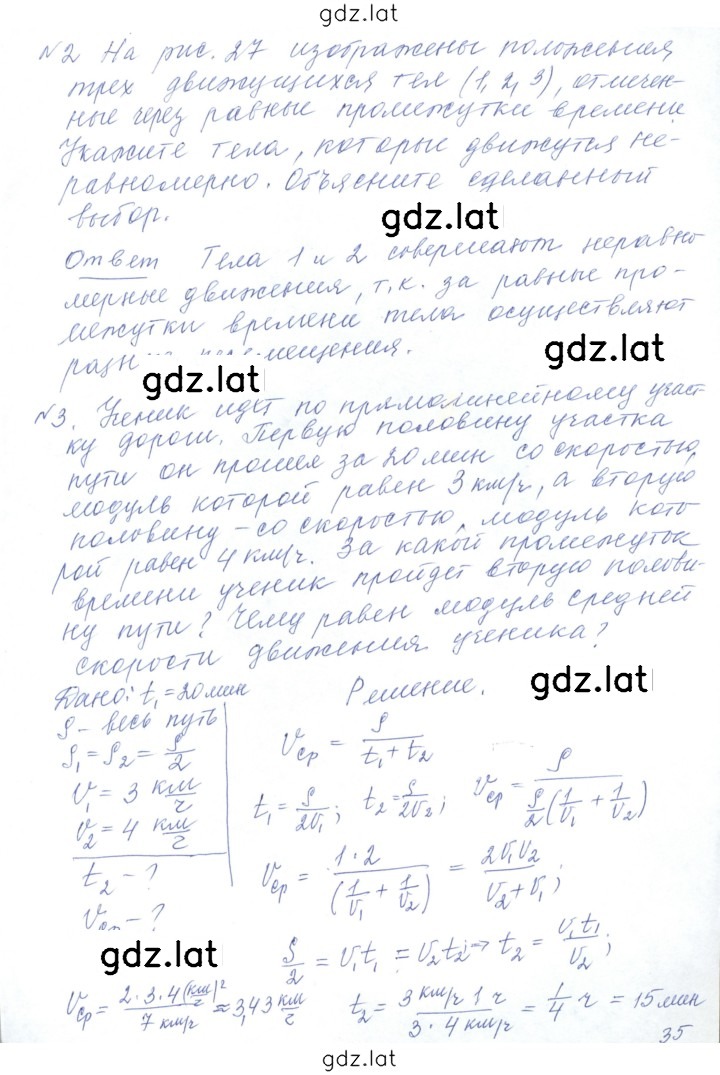 gdz.lat
№2 На рис. 27 изображены положения
трех движущихся тел (1, 2, 3), отмечен-
ные через равные промежутки времени
Укажите тела, которые движутся не-
равномерно. Объясните сделанный
выбор.
gdz.lat
Ответ Тела 1 и 2 совершают неравно
мерные движения, т.к. за равные про-
межутки времени тела осуществляют
перемещения.
gdz.lat
gdz.lat
№3. Ученик идет по прямолинейному участ-
ку дороги. Первую половину участка
пути он прошел за 20 мин со скоростью,
модуль которой равен 3 км/ч, а вторую
половину – со скоростью, модуль кото
рой равен 4 км/ч. За какой промежуток
времени ученик пройдет вторую полови-
ну пути? Чему равен модуль средней
скорости движения ученика?
gdz.lat
Дано: t₁ = 20 мин Решение.
S – весь путь
S₁ = S₂ = S/2
V₁ = 3 км/ч
V₂ = 4 км/ч
t₂ – ?
Vср – ?
Vср = S/(t₁ + t₂)
t₁ = S/2V₁; t₂ = S/2V₂; Vср = S/(S/2(1/V₁ + 1/V₂))
Vср = 1·2/(1/V₁ + 1/V₂) = 2V₁V₂/(V₂ + V₁);
gdz.lat
S/2 = V₁t₁ = V₂t₂ => t₂ = V₁t₁/V₂;
Vср = 2·3·4 (км/ч)²/7 км/ч ≈ 3,43 км/ч t₂ = 3 км/ч 1 ч/3·4 км/ч = 1/4 ч = 15 мин
35
gdz.lat